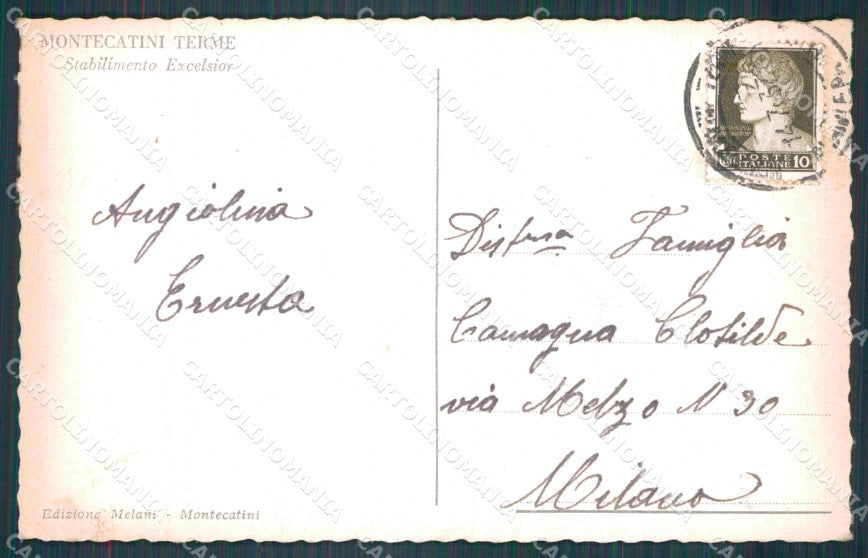 MONTECATINI TERME
Stabilimento Excelsior
Angiolina
Ernesta
POSTE
ITALIANE 10
Dist.nsa Famiglia
Camagna Clotilde
via Melzo N 30
Milano
Edizione Melani - Montecatini
CARTOLINOMANIA